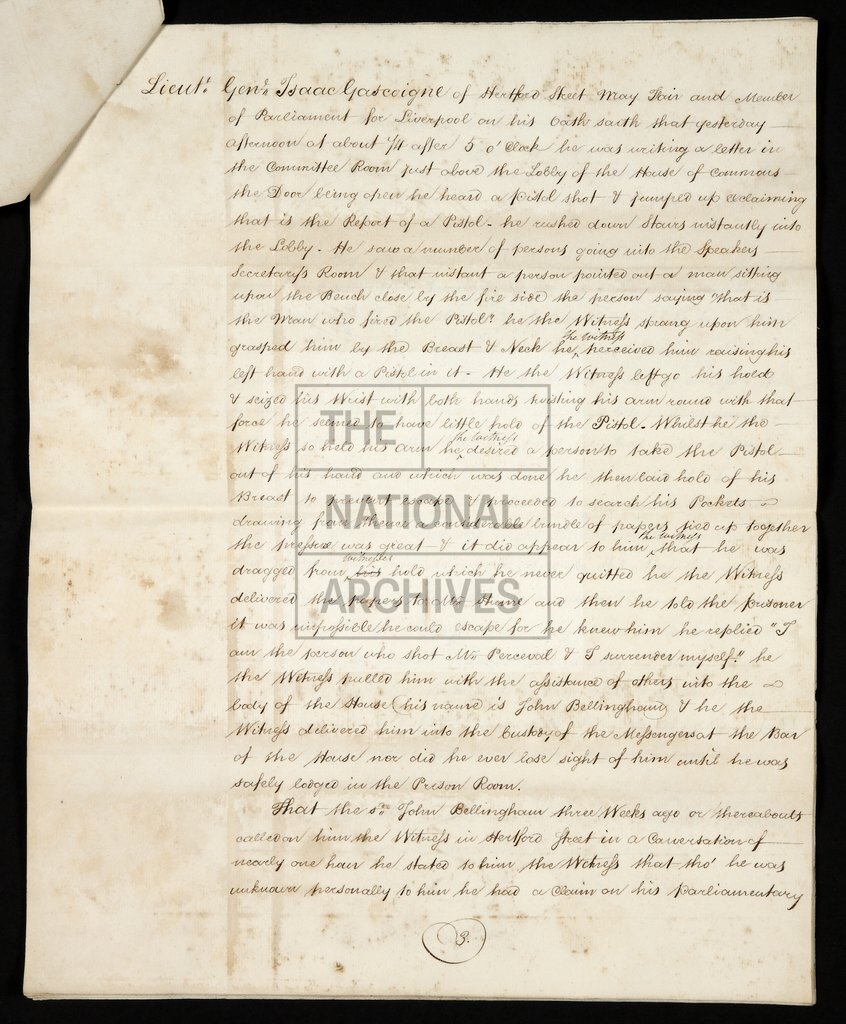 Lieut.t Gen.l Isaac Gascoigne of Hertford Street May Fair and Member
of Parliament for Liverpool on his Oath saith that yesterday
afternoon at about 1/4 after 5 o'Clock he was writing a letter in
the Committee Room just above the Lobby of the House of Commons
the Door being open he heard a Pistol shot & jumped up exclaiming
that is the Report of a Pistol - he rushed down Stairs instantly into
the Lobby - He saw a number of persons going into the Speakers
Secretarys Room & that instant a person pointed out a man sitting
upon the Bench close by the fire side the person saying "that is
the Man who fired the Pistol" he the Witness sprang upon him
grasped him by the Breast & Neck he the Witness perceived him raising his
left hand with a Pistol in it - He the Witness left go his hold
& seized his Wrist with both hands twisting his arm round with that
force he seemed to have little hold of the Pistol - Whilst he the
Witness so held his arm he the Witness desired a person to take the Pistol
out of his hand and which was done he then laid hold of his
Breast to prevent escape & proceeded to search his Pockets
drawing from thence a considerable bundle of papers tied up together
the pressure was great & it did appear to him the Witness that he was
dragged from his Witnesses hold which he never quitted he the Witness
delivered the papers to Mr. Hume and then he told the prisoner
it was impossible he could escape for he knew him he replied "I
am the person who shot Mr. Perceval & I surrender myself" he
the Witness pulled him with the assistance of others into the
body of the House (his name is John Bellingham) & he the
Witness delivered him into the Custody of the Messengers at the Bar
of the House nor did he ever lose sight of him until he was
safely lodged in the Prison Room.
That the s.d John Bellingham three Weeks ago or thereabouts
called on him the Witness in Hertford Street in a Conversation of
nearly one hour he stated to him the Witness that tho' he was
unknown personally to him he had a Claim on his Parliamentary
3.
THE
NATIONAL
ARCHIVES